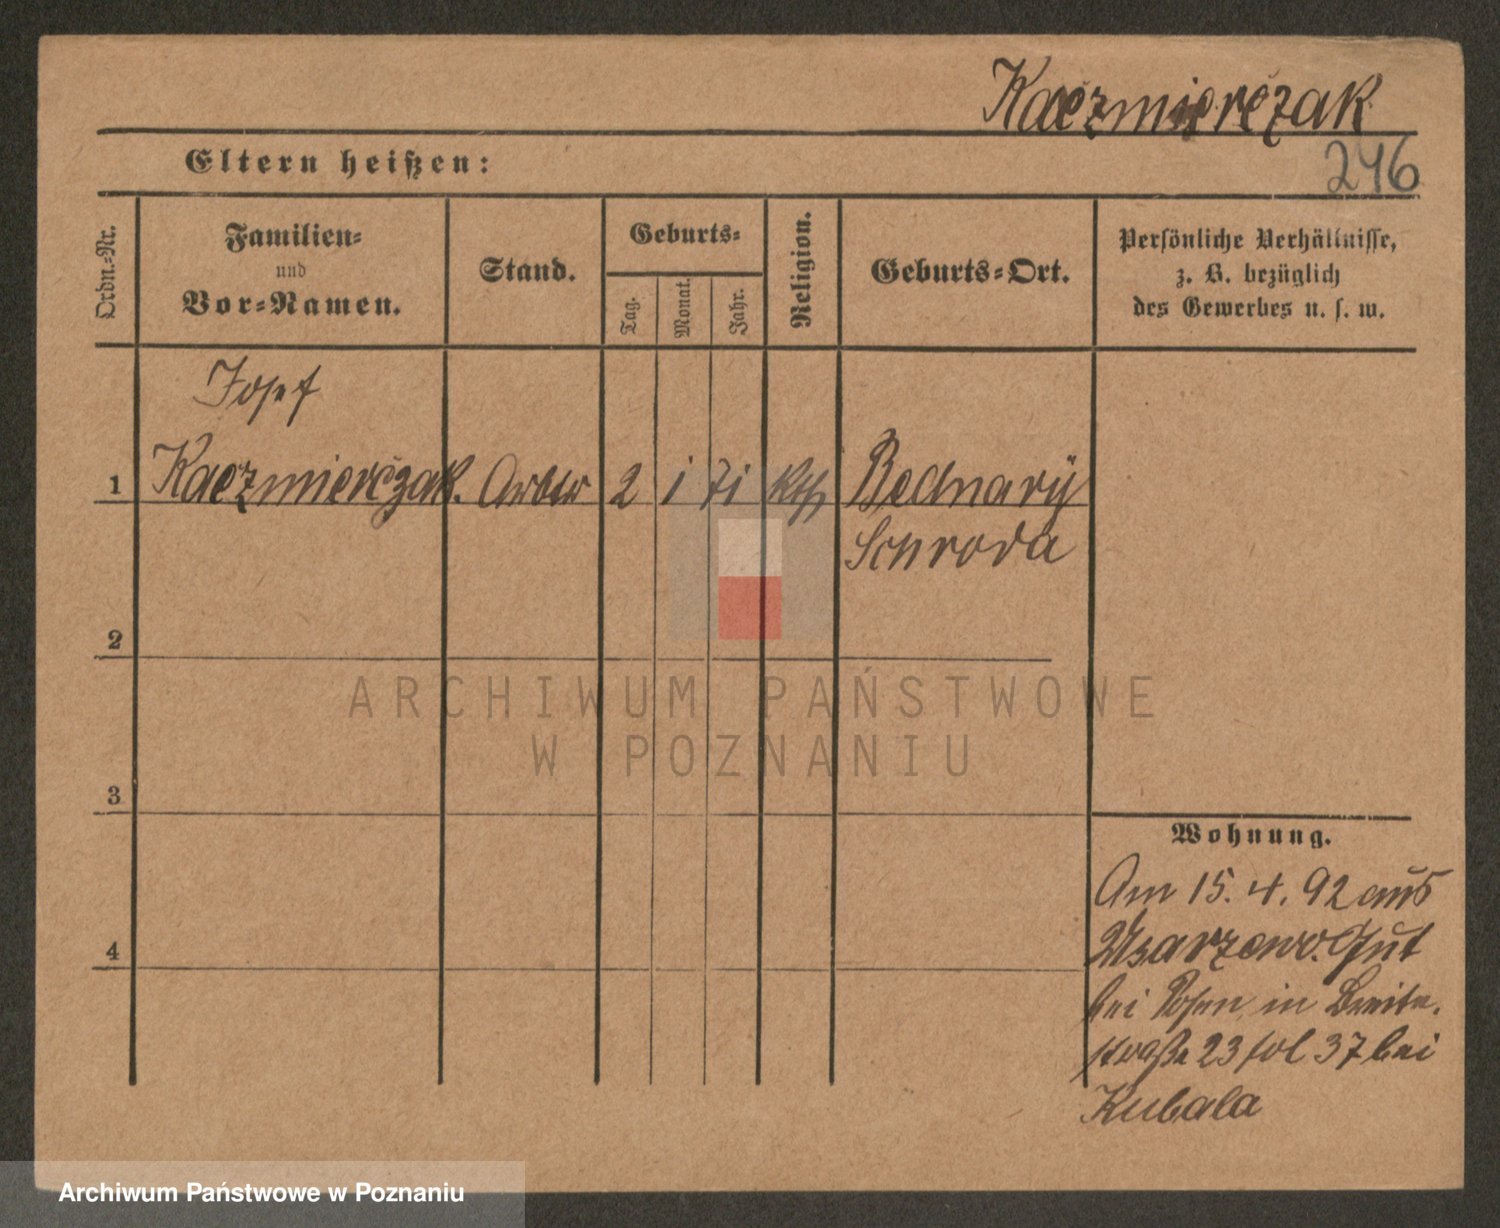 Kaczmierczak
Eltern heißen:
246
Ordn.-Nr.
Familien-
und
Vor-Namen.
Stand.
Geburts-
Tag.
Monat.
Jahr.
Religion.
Geburts-Ort.
Persönliche Verhältnisse,
z. B. bezüglich
des Gewerbes u. s. w.
Josef
1 Kaczmierczak. Arbtr 2 1 71 kth Bednary
Schroda
2
3
4
Wohnung.
Am 15. 4. 92 aus
Usarzewo. Gut
bei Posen in Breite-
straße 23 fol 37 bei
Kubala
ARCHIWUM PAŃSTWOWE
W POZNANIU
Archiwum Państwowe w Poznaniu